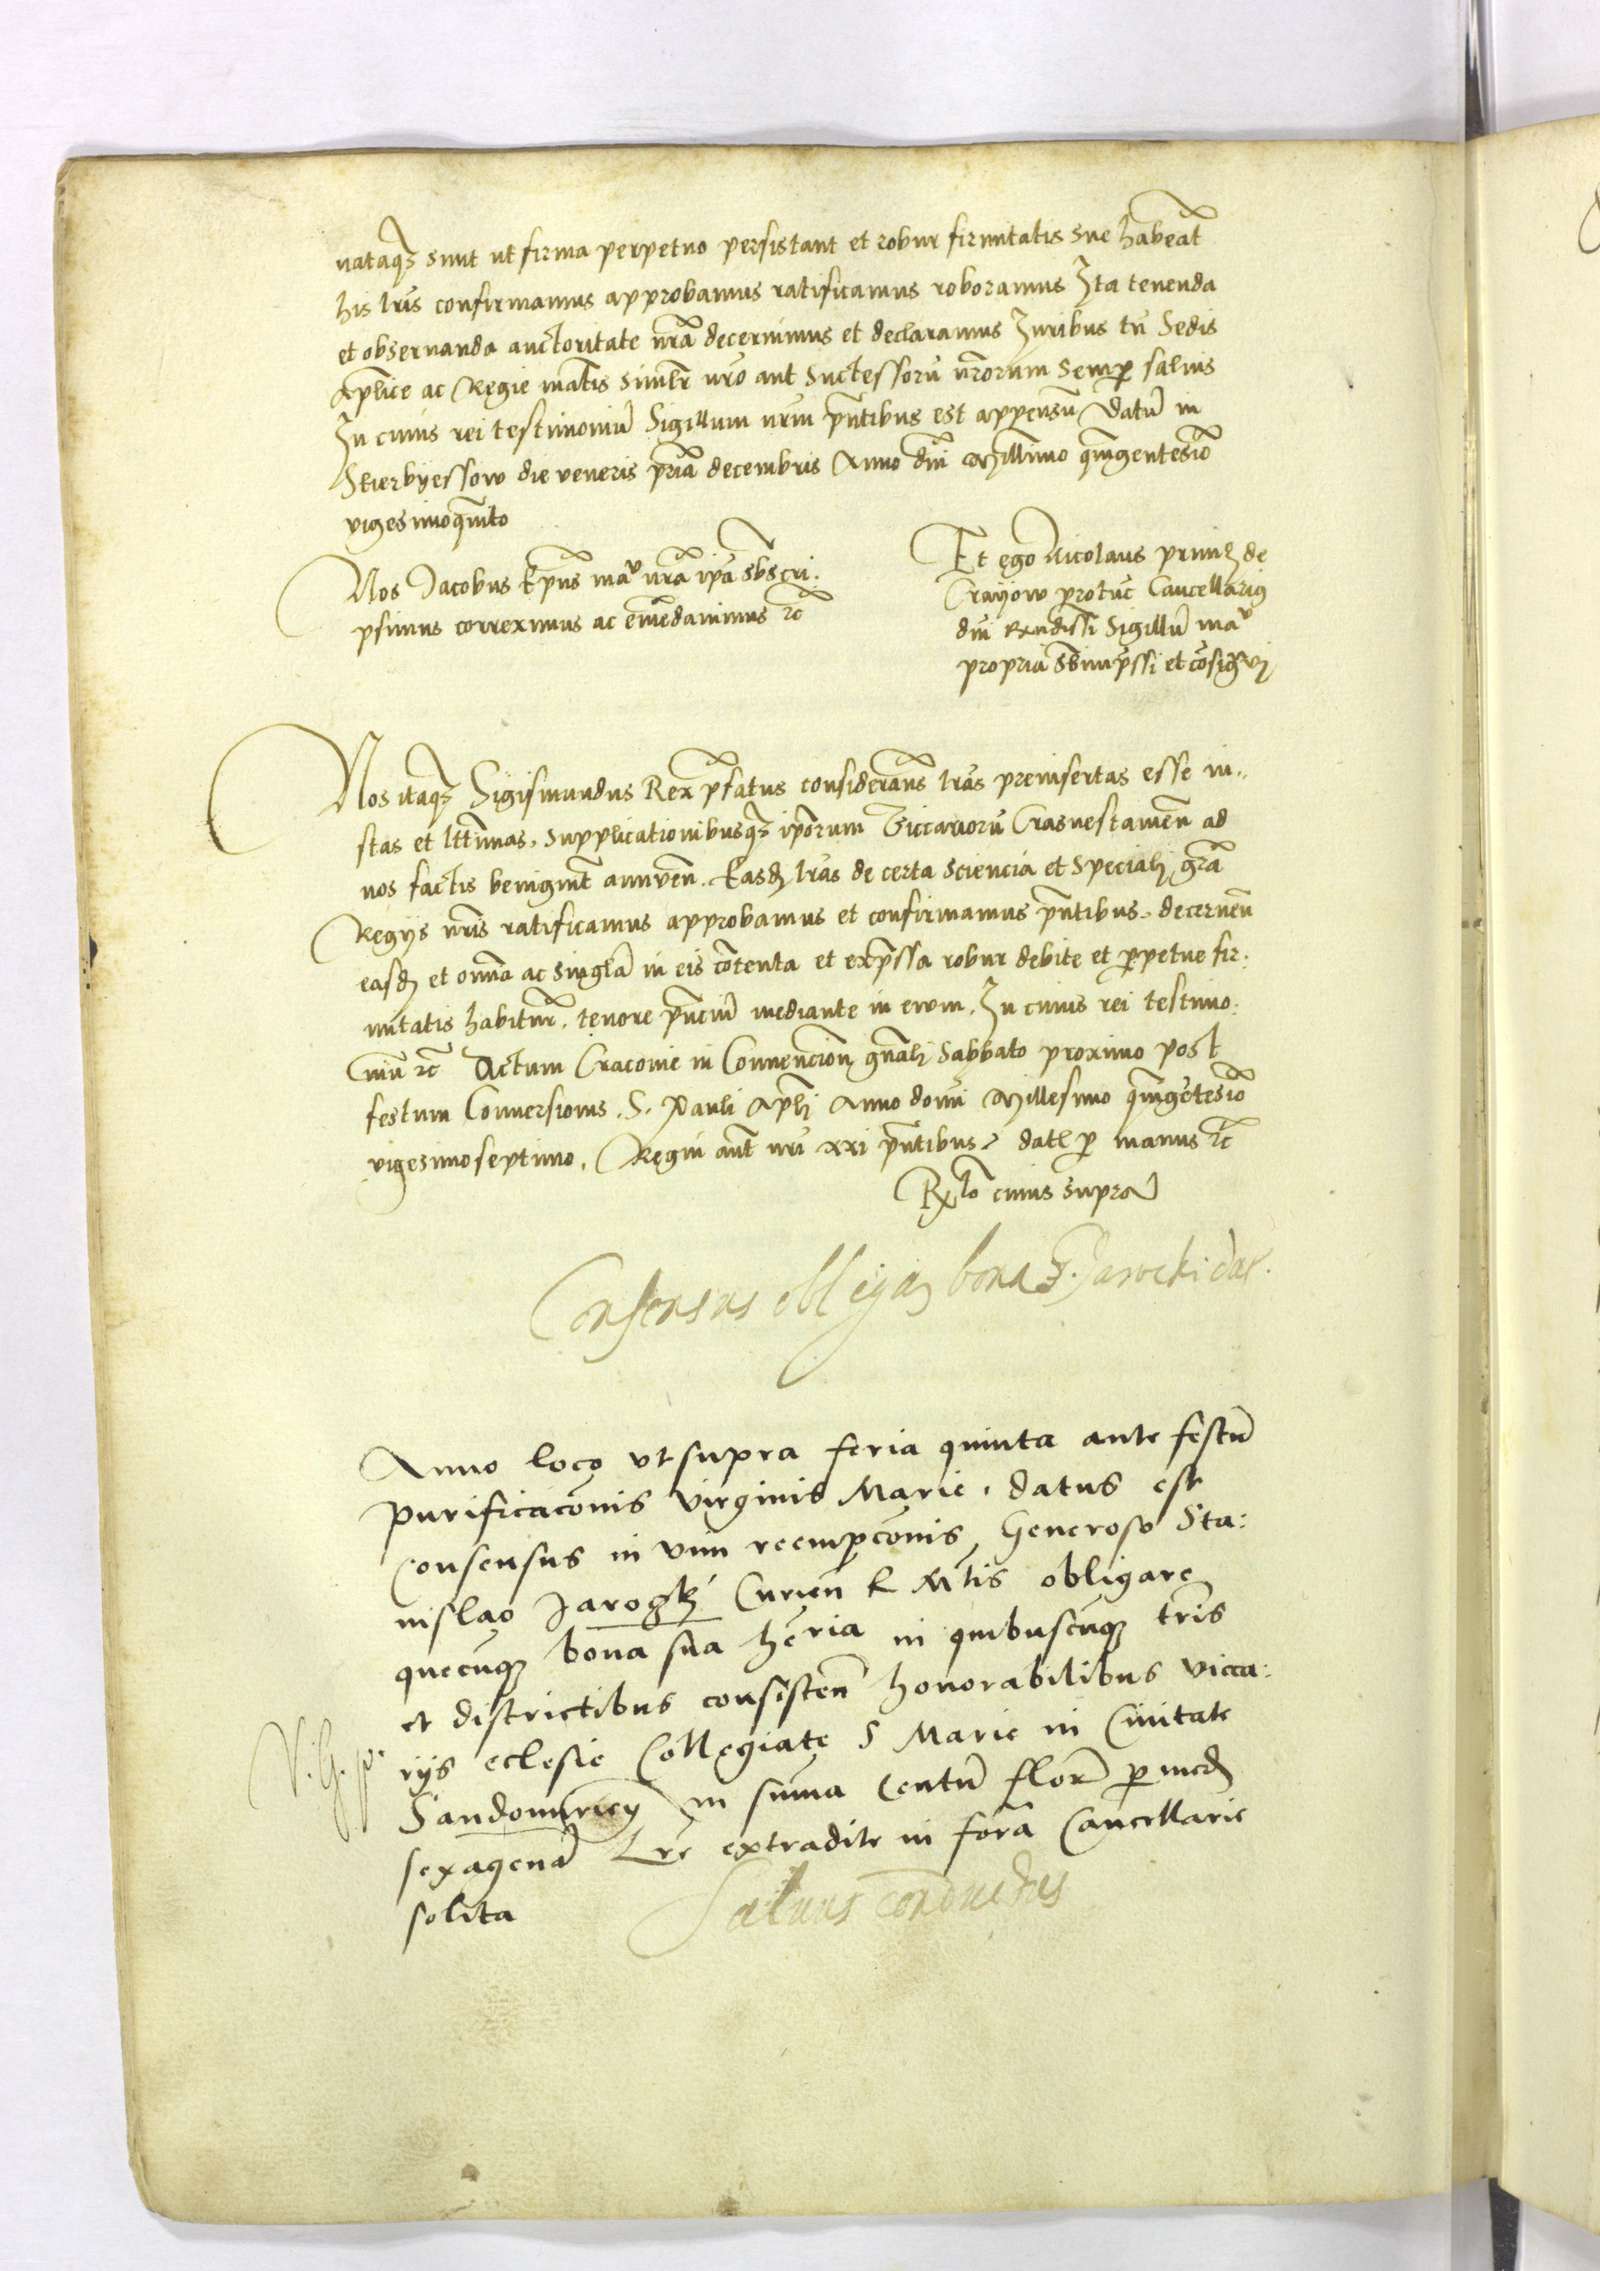 nataqz sunt ut firma perpetuo persistant et robur firmitatis sue habeāt
his lr̄is confirmamus approbamus ratificamus roboramus Ita tenenda
et obseruanda auctoritate nr̄a decernimus et declaramus Iuribus tn̄ Sedis
Aplice ac Regie mātis similr̄ nr̄o aut Successorū nr̄orum semp salvis
In cuius rei testimoniū Sigillum nr̄m pn̄tibus est appensū Datū in
Skierbyessow die veneris pria decembris Anno dn̄i Millīmo quīgentesīo
vigesimoquīto
Nos Jacobus Epūs maū nr̄a ipā sbscri:
psimus correximus ac emēdavimus ꝛc̄
Et ego Nicolaus
Crayow protūc Cancellariꝰ
dn̄i Rndissi Sigillū maū
propria sbimpssi et cōsigvi
Nos itaqz Sigismundus Rex pfatus considerān̄s lr̄as preinsertas esse iu..
stas et lttimas, supplicationibusqz ipōrum Viccariorū Crasnestamen̄ ad
nos factis benignīt annuēn̄. Easd lr̄as de certa sciencia et speciali gr̄a
Regijs nr̄is ratificamus approbamus et confirmamus pn̄tibus. decernen̄
easd et omīa ac singlā in eis cōtenta et expssa robur debite et ppetue fir:
mitatis habiturā, tenore pn̄ciū mediante in ewm. In cuius rei testimo:
niū ꝛc̄ Actum Cracovie in Convencion gn̄ali Sabbato proximo post
festum Conversionis. S. Pauli Apli Anno domi Millesimo quīgētesīo
vigesimoseptimo, Regni aūt nr̄i xxi pn̄tibus dat p manus ꝛc̄
Rlō cuius supra
Consensus obligan bona G. Jarocki dat.
Anno loco vt supra feria quinta ante festū
purificacōnis virginis Marie, datus est
Consensus in vim reempcōnis Generoso Sta:
nislao Jarogky Curien R Mtis obligare
quecūqz bona sua hēria in quibuscūqz tr̄is
et districtibus consisten̄ honorabilibus vicca:
V. G. p.
rijs eclesie Collegiate S Marie in Civitate
Sandomiriey in sūma Centū flor̄ p med
sexagenā Lr̄e extradite in forā Cancellarie
solita
Salvus conductus